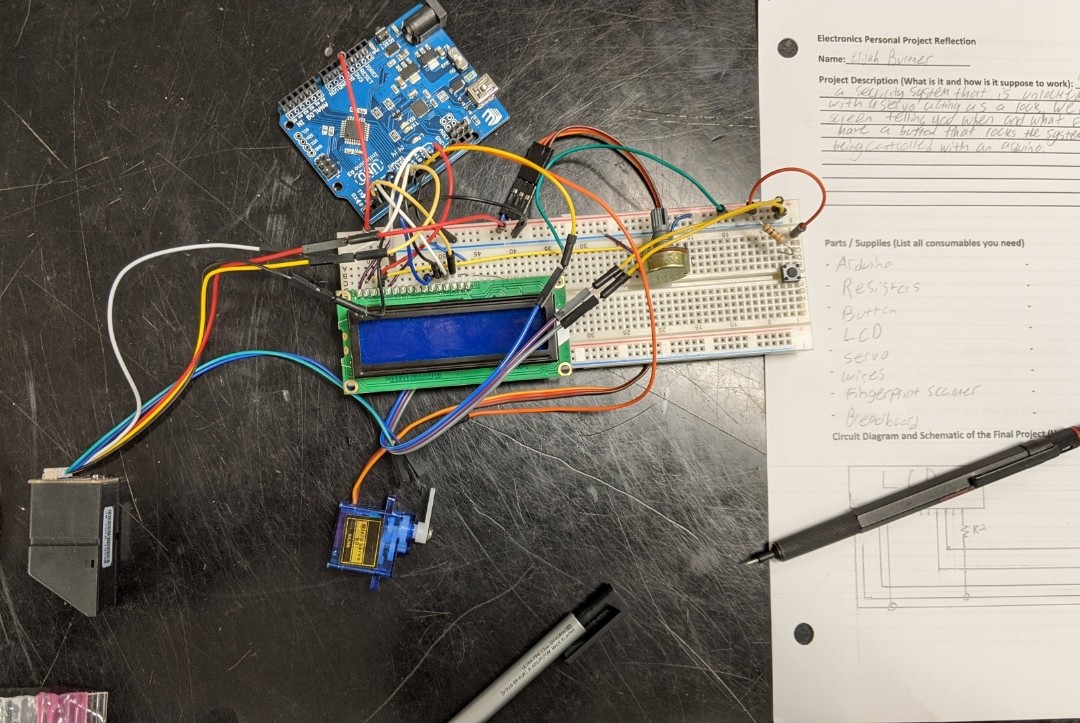 Electronics Personal Project Reflection
Name: Elijah
Project Description (What is it and how is it suppose to work):
a security system that is
with a servo acting as a lock. We
screen telling you when and what
have a button that locks the system
being controlled with an arduino.
Parts / Supplies (List all consumables you need)
- Arduino
- Resistors
- Button
- LCD
- servo
- wires
- Fingerprint scanner
- Breadboard
Circuit Diagram and Schematic of the Final Project
LCD
R2
UNO
ANALOG IN
Micro Servo